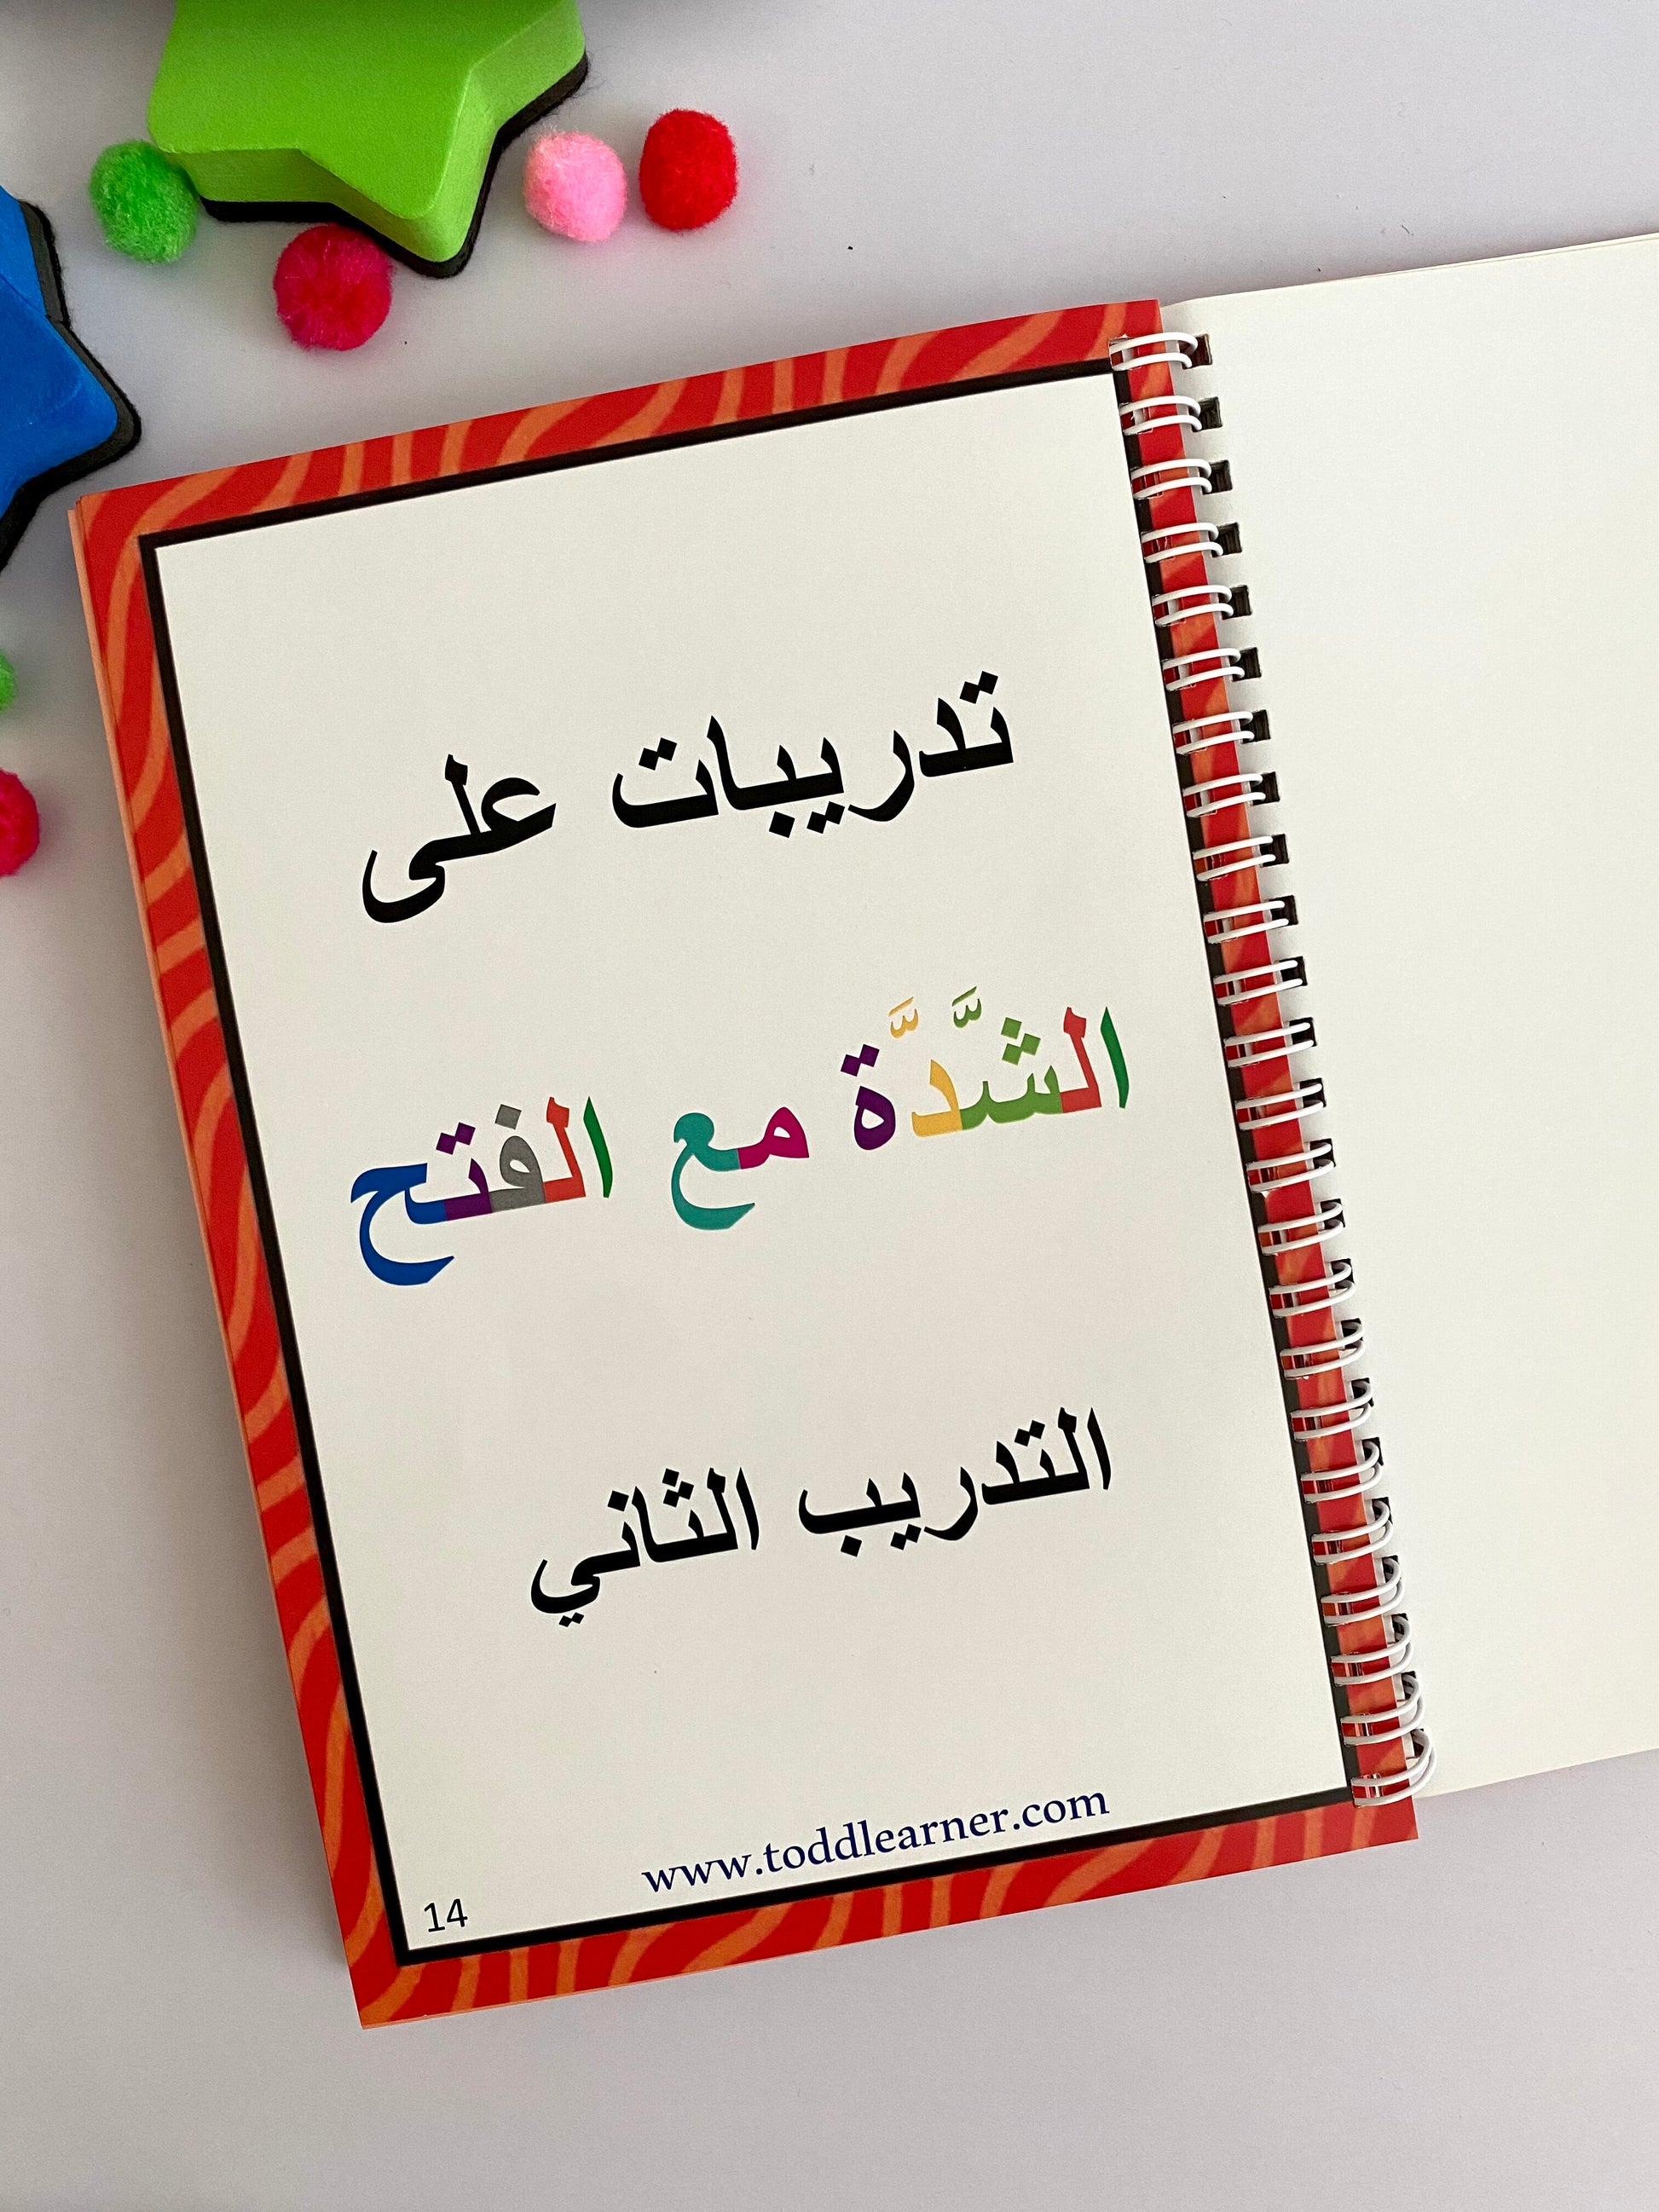 تدريبات على
الشَّدَّة مع الفتح
التدريب الثاني
www.toddlearner.com
14